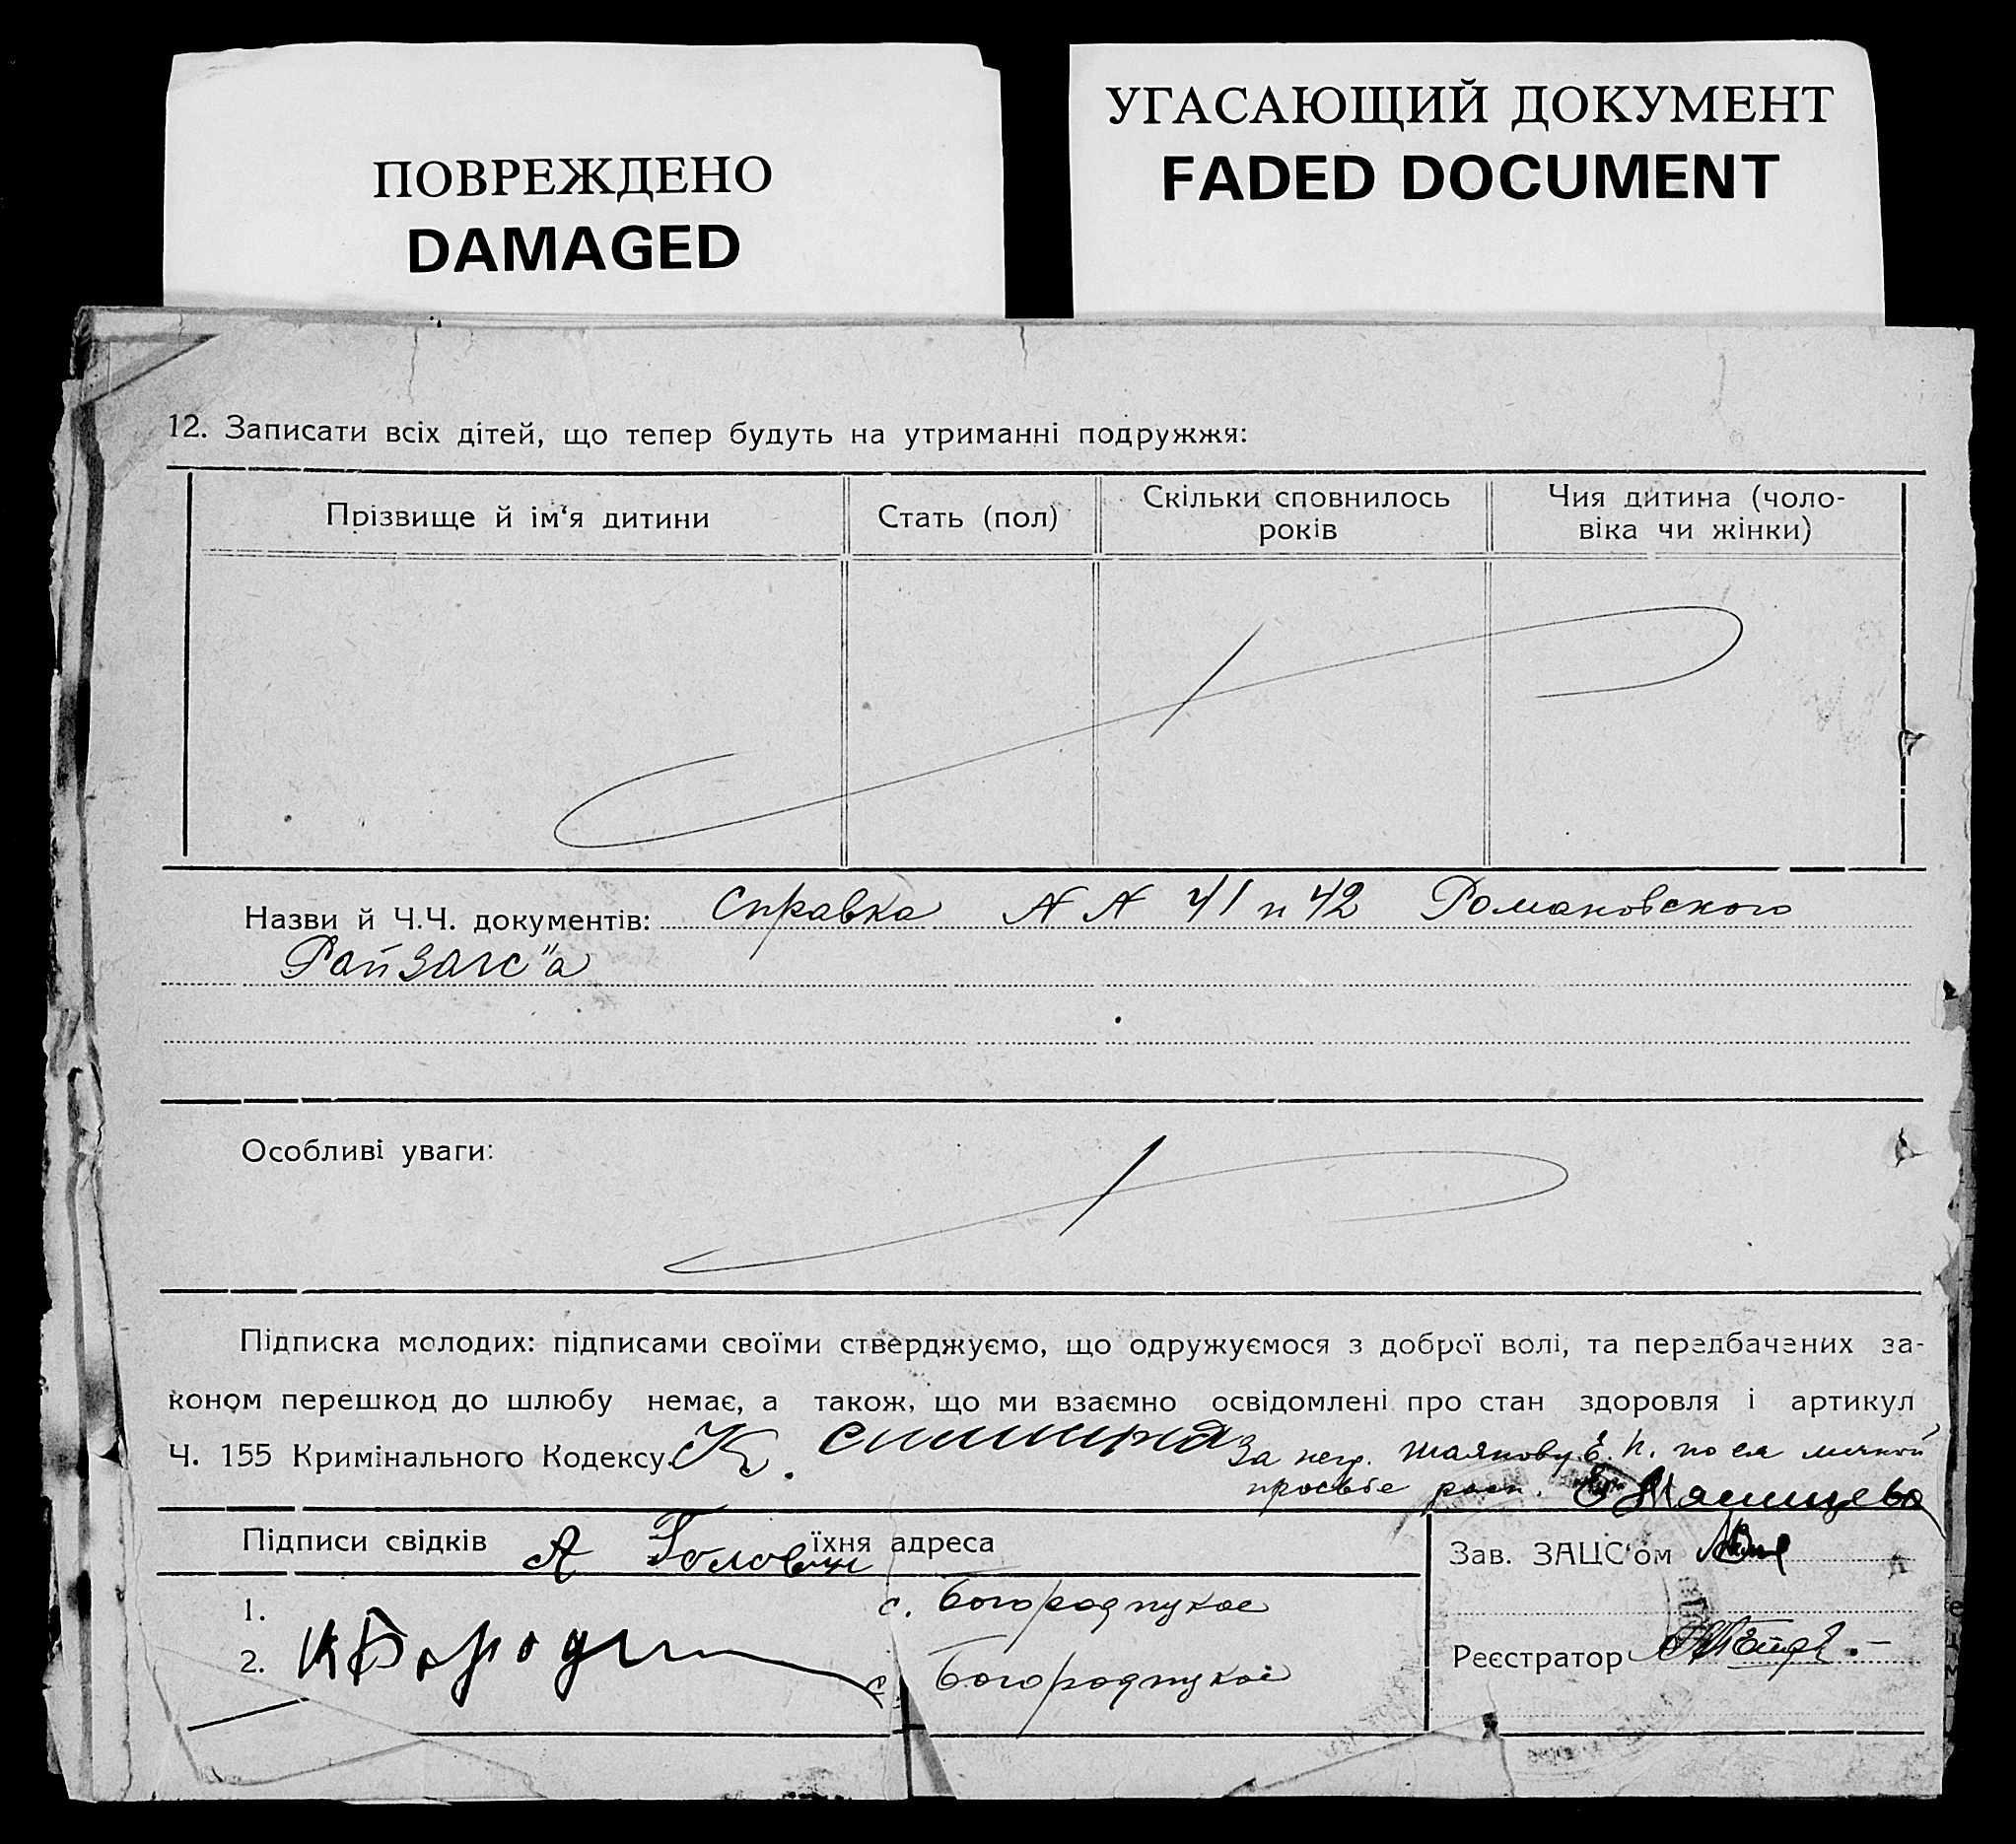 ПОВРЕЖДЕНО
DAMAGED
УГАСАЮЩИЙ ДОКУМЕНТ
FADED DOCUMENT
12. Записати всіх дітей, що тепер будуть на утриманні подружжя:
Прізвище й ім‘я дитини
Стать (пол)
Скільки сповнилось
років
Чия дитина (чоло-
віка чи жінки)
Назви й Ч.Ч. документів: Справка № № 41 и 42 Романовского
РайЗагс"а
Особливі уваги:
Підписка молодих: підписами своїми стверджуємо, що одружуємося з доброї волі, та передбачених за-
коном перешкод до шлюбу немає, а також, що ми взаємно освідомлені про стан здоровля і артикул
Ч. 155 Кримінального Кодексу К. За негр. по ея личной
просьбе расп. Е Мясищева
Підписи свідків А Головин їхня адреса
1. с. Богородицкое
2. КБородин с. Богородицкое
Зав. ЗАЦС‘ом
Реєстратор